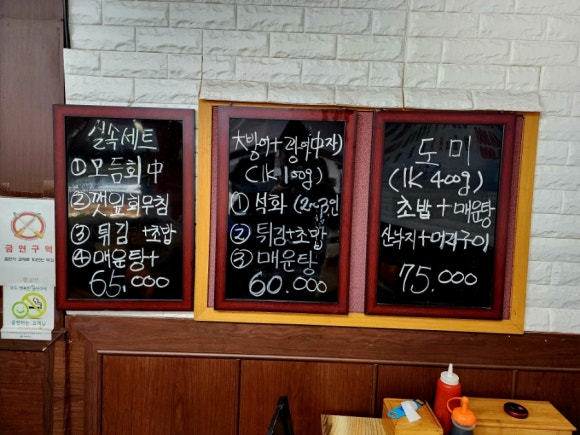 실속세트
① 모듬회 中
② 깻잎회무침
③ 튀김 +초밥
④ 매운탕+
65.000
大방어+광어中자
(1K 100g)
① 석화
② 튀김+초밥
③ 매운탕
60.000
도미
(1K 400g)
초밥+매운탕
산낙지+머리구이
75.000
금연구역